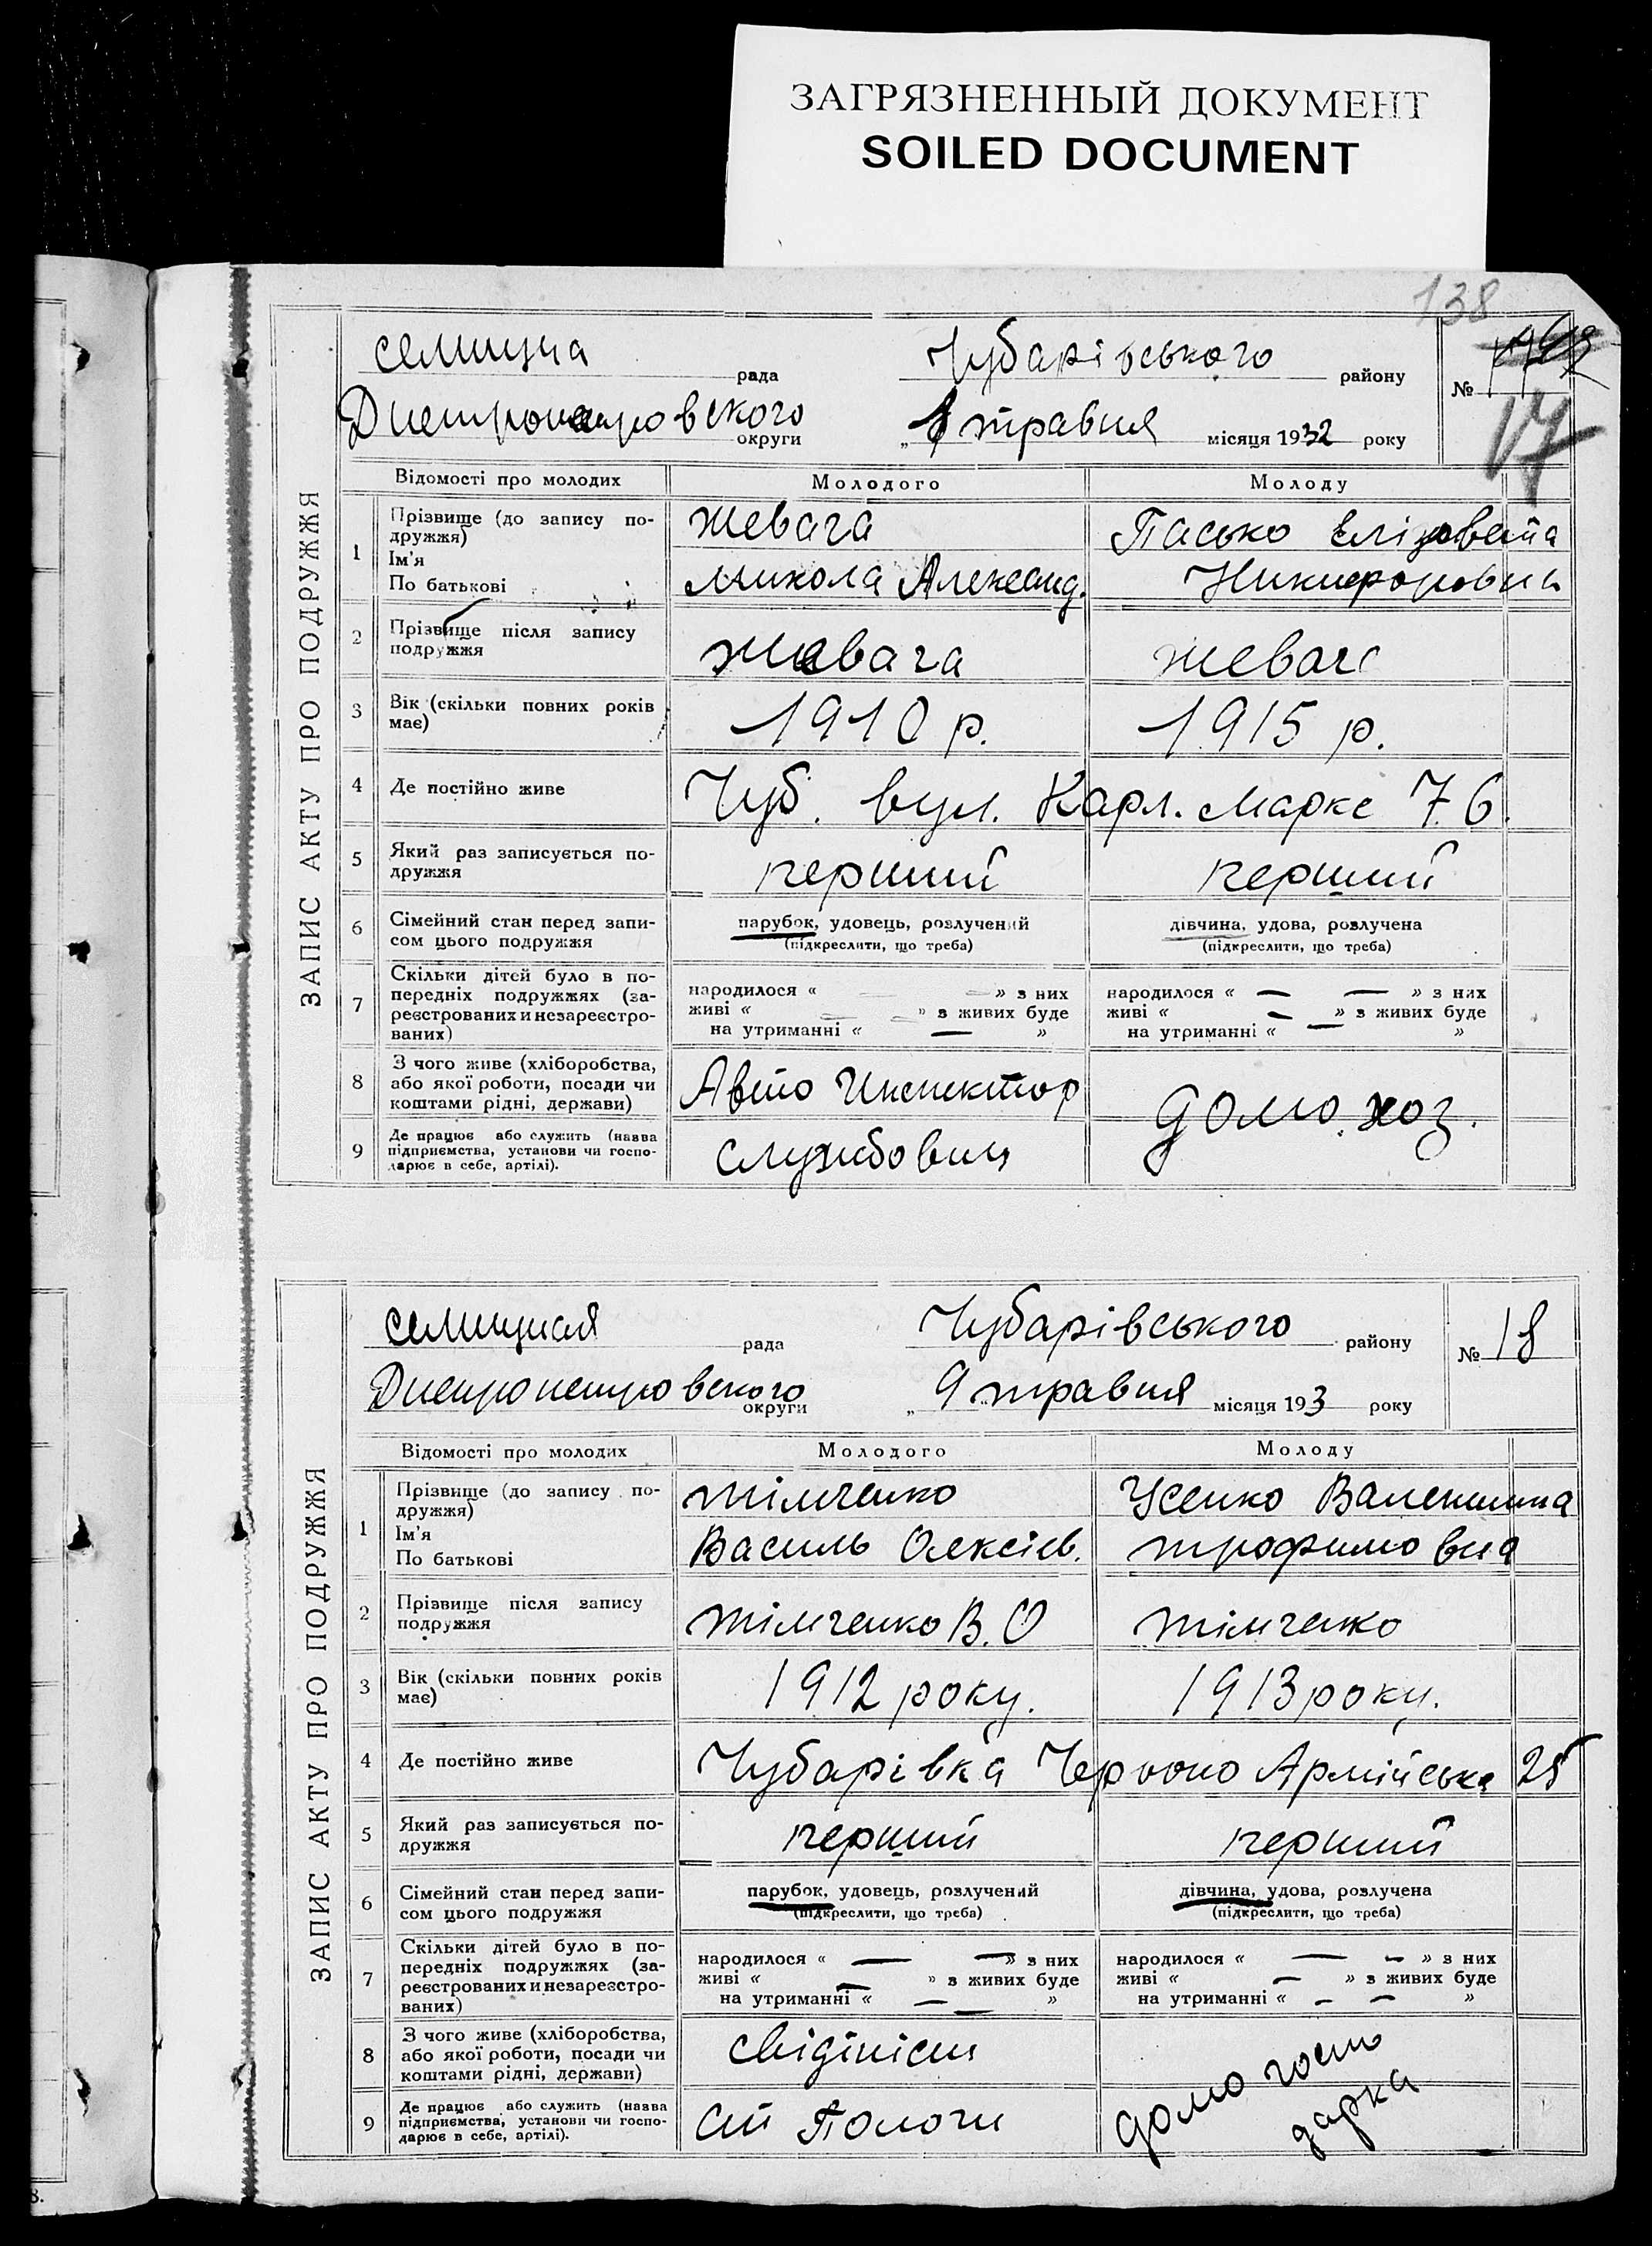 ЗАГРЯЗНЕННЫЙ ДОКУМЕНТ
SOILED DOCUMENT
138
ЗАПИС АКТУ ПРО ПОДРУЖЖЯ
селищна рада Чубарівського району №
17
Днепропетровского округи „8 травня місяця 1932 року
Відомості про молодих Молодого Молоду
1 Прізвище (до запису по-
дружжя)
Ім'я
По батькові
Жевага
Микола Александ.
Пасько Елізовета
Никифоровна
2 Прізвище після запису
подружжя
Жевага Жевага
3 Вік (скільки повних років
має)
1910 р. 1915 р.
4 Де постійно живе Чуб. вул. Карл. Маркс 76.
5 Який раз записується по-
дружжя
перший перший
6 Сімейний стан перед запи-
сом цього подружжя
парубок, удовець, розлучений
(підкреслити, що треба)
дівчина, удова, розлучена
(підкреслити, що треба)
7 Скільки дітей було в по-
передніх подружжях (за-
реєстрованих и незареєстро-
ваних)
народилося « — — » з них
живі « — — » з живих буде
на утриманні « — »
народилося « — — » з них
живі « — » з живих буде
на утриманні « — »
8 З чого живе (хліборобства,
або якої роботи, посади чи
коштами рідні, держави)
Авто Инспектор
домо.хоз.
9 Де працює або служить (назва
підприємства, установи чи госпо-
дарює в себе, артілі).
службовиц
ЗАПИС АКТУ ПРО ПОДРУЖЖЯ
селищная рада Чубарівського району № 18
Днепропетровского округи „9 травня місяця 193 3 року
Відомості про молодих Молодого Молоду
1 Прізвище (до запису по-
дружжя)
Ім'я
По батькові
Тімченко
Василь Олексієв.
Усенко Валентина
Трофимовна
2 Прізвище після запису
подружжя
Тімченко В. О Тімченко
3 Вік (скільки повних років
має)
1912 року. 1913 року.
4 Де постійно живе Чубарівка Червоно Армійська 25
5 Який раз записується по-
дружжя
перший перший
6 Сімейний стан перед запи-
сом цього подружжя
парубок, удовець, розлучений
(підкреслити, що треба)
дівчина, удова, розлучена
(підкреслити, що треба)
7 Скільки дітей було в по-
передніх подружжях (за-
реєстрованих и незареєстро-
ваних)
народилося « — — » з них
живі « — » з живих буде
на утриманні « — — »
народилося « — — » з них
живі « — » з живих буде
на утриманні « — — »
8 З чого живе (хліборобства,
або якої роботи, посади чи
коштами рідні, держави)
домо госпо
дарка
9 Де працює або служить (назва
підприємства, установи чи госпо-
дарює в себе, артілі).
Пологи